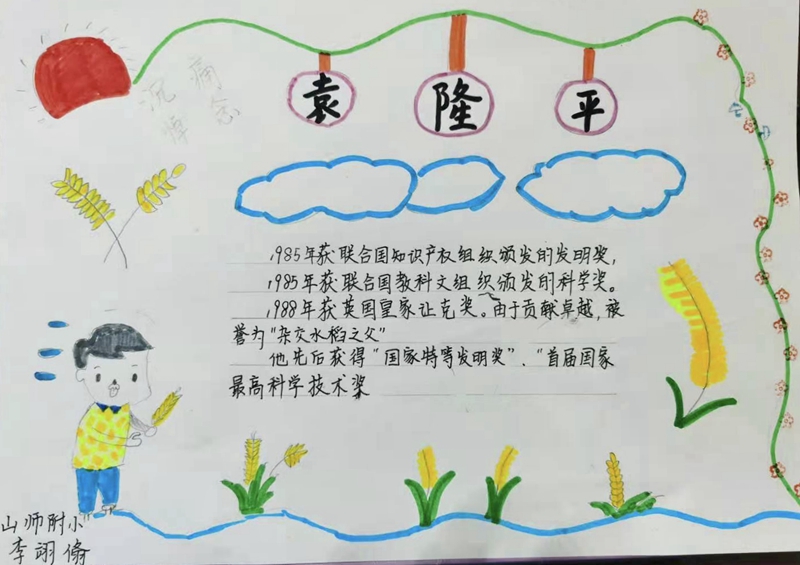 沉痛
悼念
袁隆平
1985年获联合国知识产权组织颁发的发明奖,
1985年获联合国教科文组织颁发的科学奖。
1988年获英国皇家让克奖。由于贡献卓越,被
誉为"杂交水稻之父"
他先后获得"国家特等发明奖"、"首届国家
最高科学技术奖
山师附小
李翊